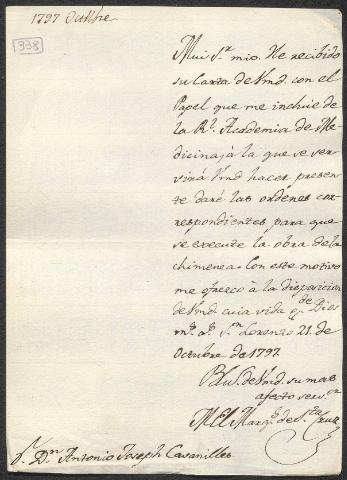 1797 Octubre
338
Mui S.r mio. He recibido
su Carta de Vmd. con el
Papel que me incluie de
la R.l Academia de Me-
dicina, à la que se ser-
virá Vmd hacer presen-
te daré las ordenes cor-
respondientes para que
se execute la obra de la
chimenea. Con este motivo
me ofrezco à la disposicion
de Vmd. cuia vida g.de Dios
m.s a.s S.n Lorenzo 21. de
Octubre de 1797.
de Vmd. su mas
afecto serv.or
M El Marq.s de S.ta Cruz
S.r D.n Antonio Joseph Cavanilles.